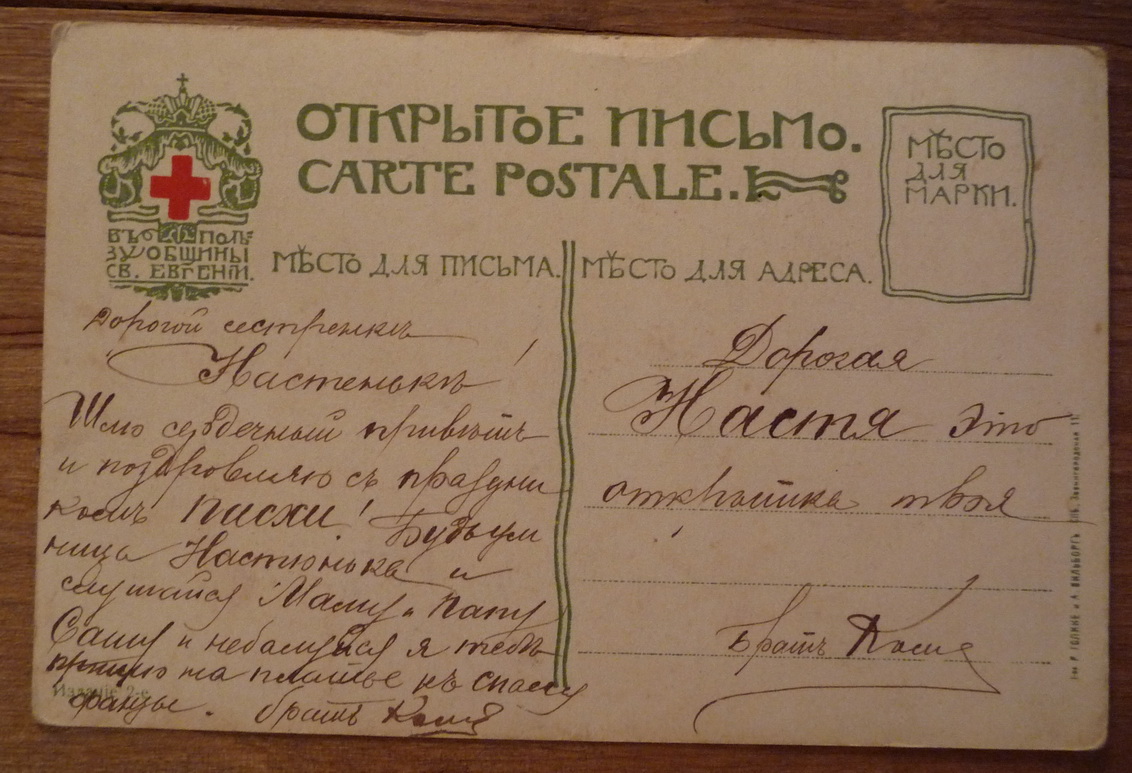 ОТКРЫТОЕ ПИСЬМО.
CARTE POSTALE.
МѢСТО
ДЛЯ
МАРКИ.
ВЪ ПОЛЬ-
ЗУ ОБЩИНЫ
СВ. ЕВГЕНІИ.
МѢСТО ДЛЯ ПИСЬМА.
МѢСТО ДЛЯ АДРЕСА.
Дорогой сестренкѣ
Настенькѣ!
Шлю сердечный привѣтъ
и поздровляю съ праздни
комъ Пасхи! Будь ум
ница Настюнька и
слушайся Маму и Папу
Сашу и небалуйся я тебѣ
пришлю на платье къ спасу
брать Коля
Изданіе 2-е
Дорогая
Настя это
открытка твоя
Братъ Коля
Р. ГОЛИКЕ и А. ВИЛЬБОРГЪ СПБ. Звенигородская 11